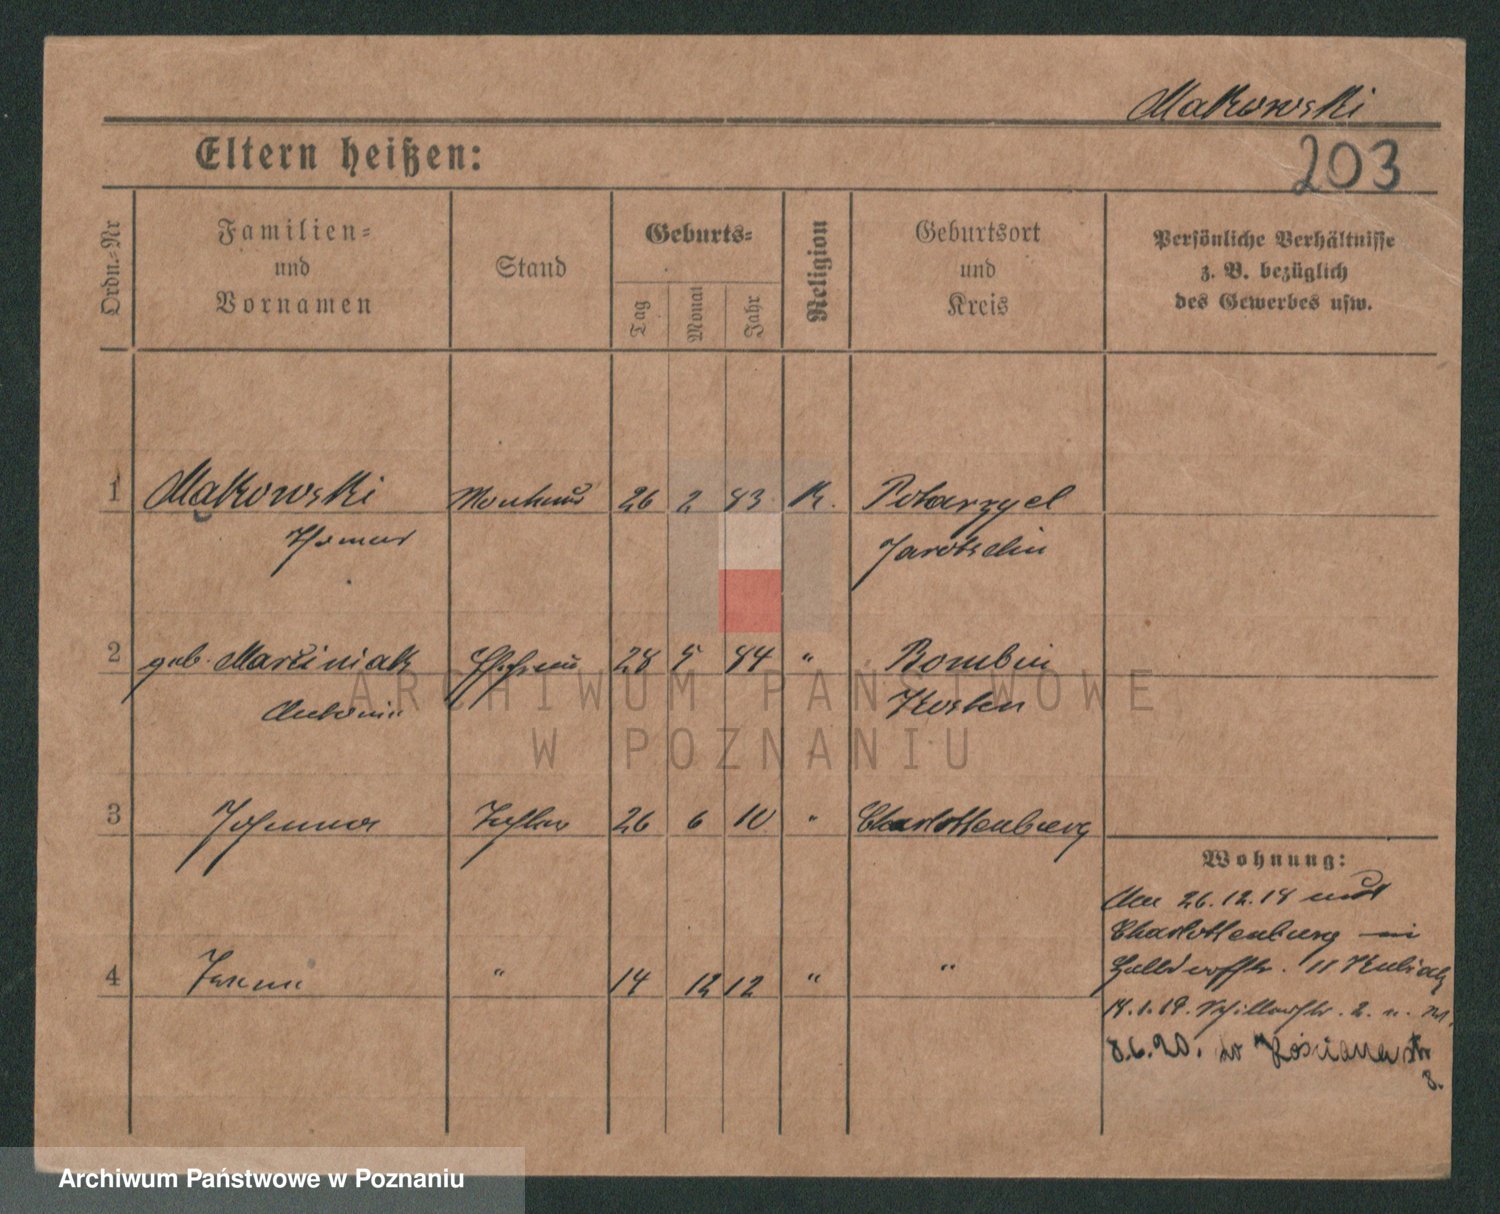 Makowski
203
Eltern heißen:
Ordn.-Nr
Familien-
und
Vornamen
Stand
Geburts-
Tag
Monat
Jahr
Religion
Geburtsort
und
Kreis
Persönliche Verhältnisse
z. B. bezüglich
des Gewerbes usw.
1 Makowski 26 2 83 K. Potarzyce
Thomas Jarotschin
2 geb. Marciniak Ehefrau 28 5 84 " Bombin
Antonie Kosten
3 Johanna Tochter 26 6 10 " Charlottenburg
Wohnung:
26.12.18
Charlottenburg in
11
4 Irene " 14 12 12 " "
18.1.19. Schillerstr. 2.
8.6.20.
8.
ARCHIWUM PAŃSTWOWE
W POZNANIU
Archiwum Państwowe w Poznaniu